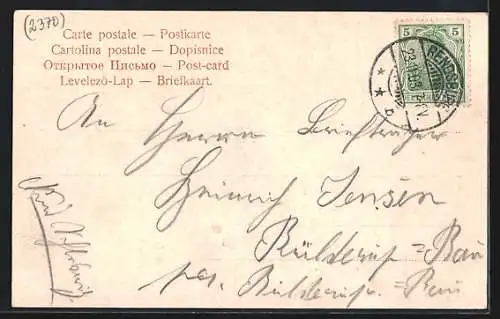 (2370)
Carte postale — Postkarte
Cartolina postale — Dopisnice
Открытое Письмо — Post-card
Levelező-Lap — Briefkaart.
5 5
RENDSBURG
An Herrn Briefträger
Heinrich Jensen
Bülderup=Bau
Bülderup=Bau